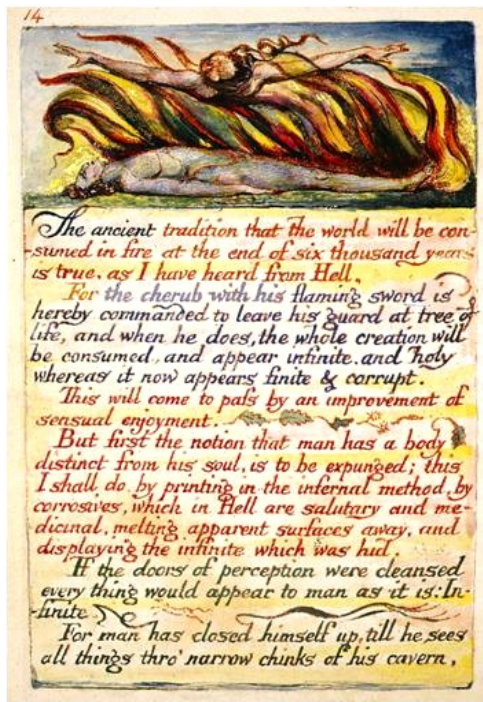 14
The ancient tradition that the world will be con-
-sumed in fire at the end of six thousand years
is true. as I have heard from Hell.
For the cherub with his flaming sword is
hereby commanded to leave his guard at tree of
life, and when he does, the whole creation will
be consumed, and appear infinite. and holy
whereas it now appears finite & corrupt.
This will come to paſs by an improvement of
sensual enjoyment.
But first the notion that man has a body
distinct from his soul, is to be expunged; this
I shall do, by printing in the infernal method, by
corrosives, which in Hell are salutary and me-
dicinal, melting apparent surfaces away, and
displaying the infinite which was hid.
If the doors of perception were cleansed
every thing would appear to man as it is: In-
-finite
For man has closed himself up, till he sees
all things thro' narrow chinks of his cavern.